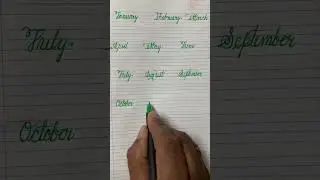 January February March
April May June
July August September
October
July
September
October